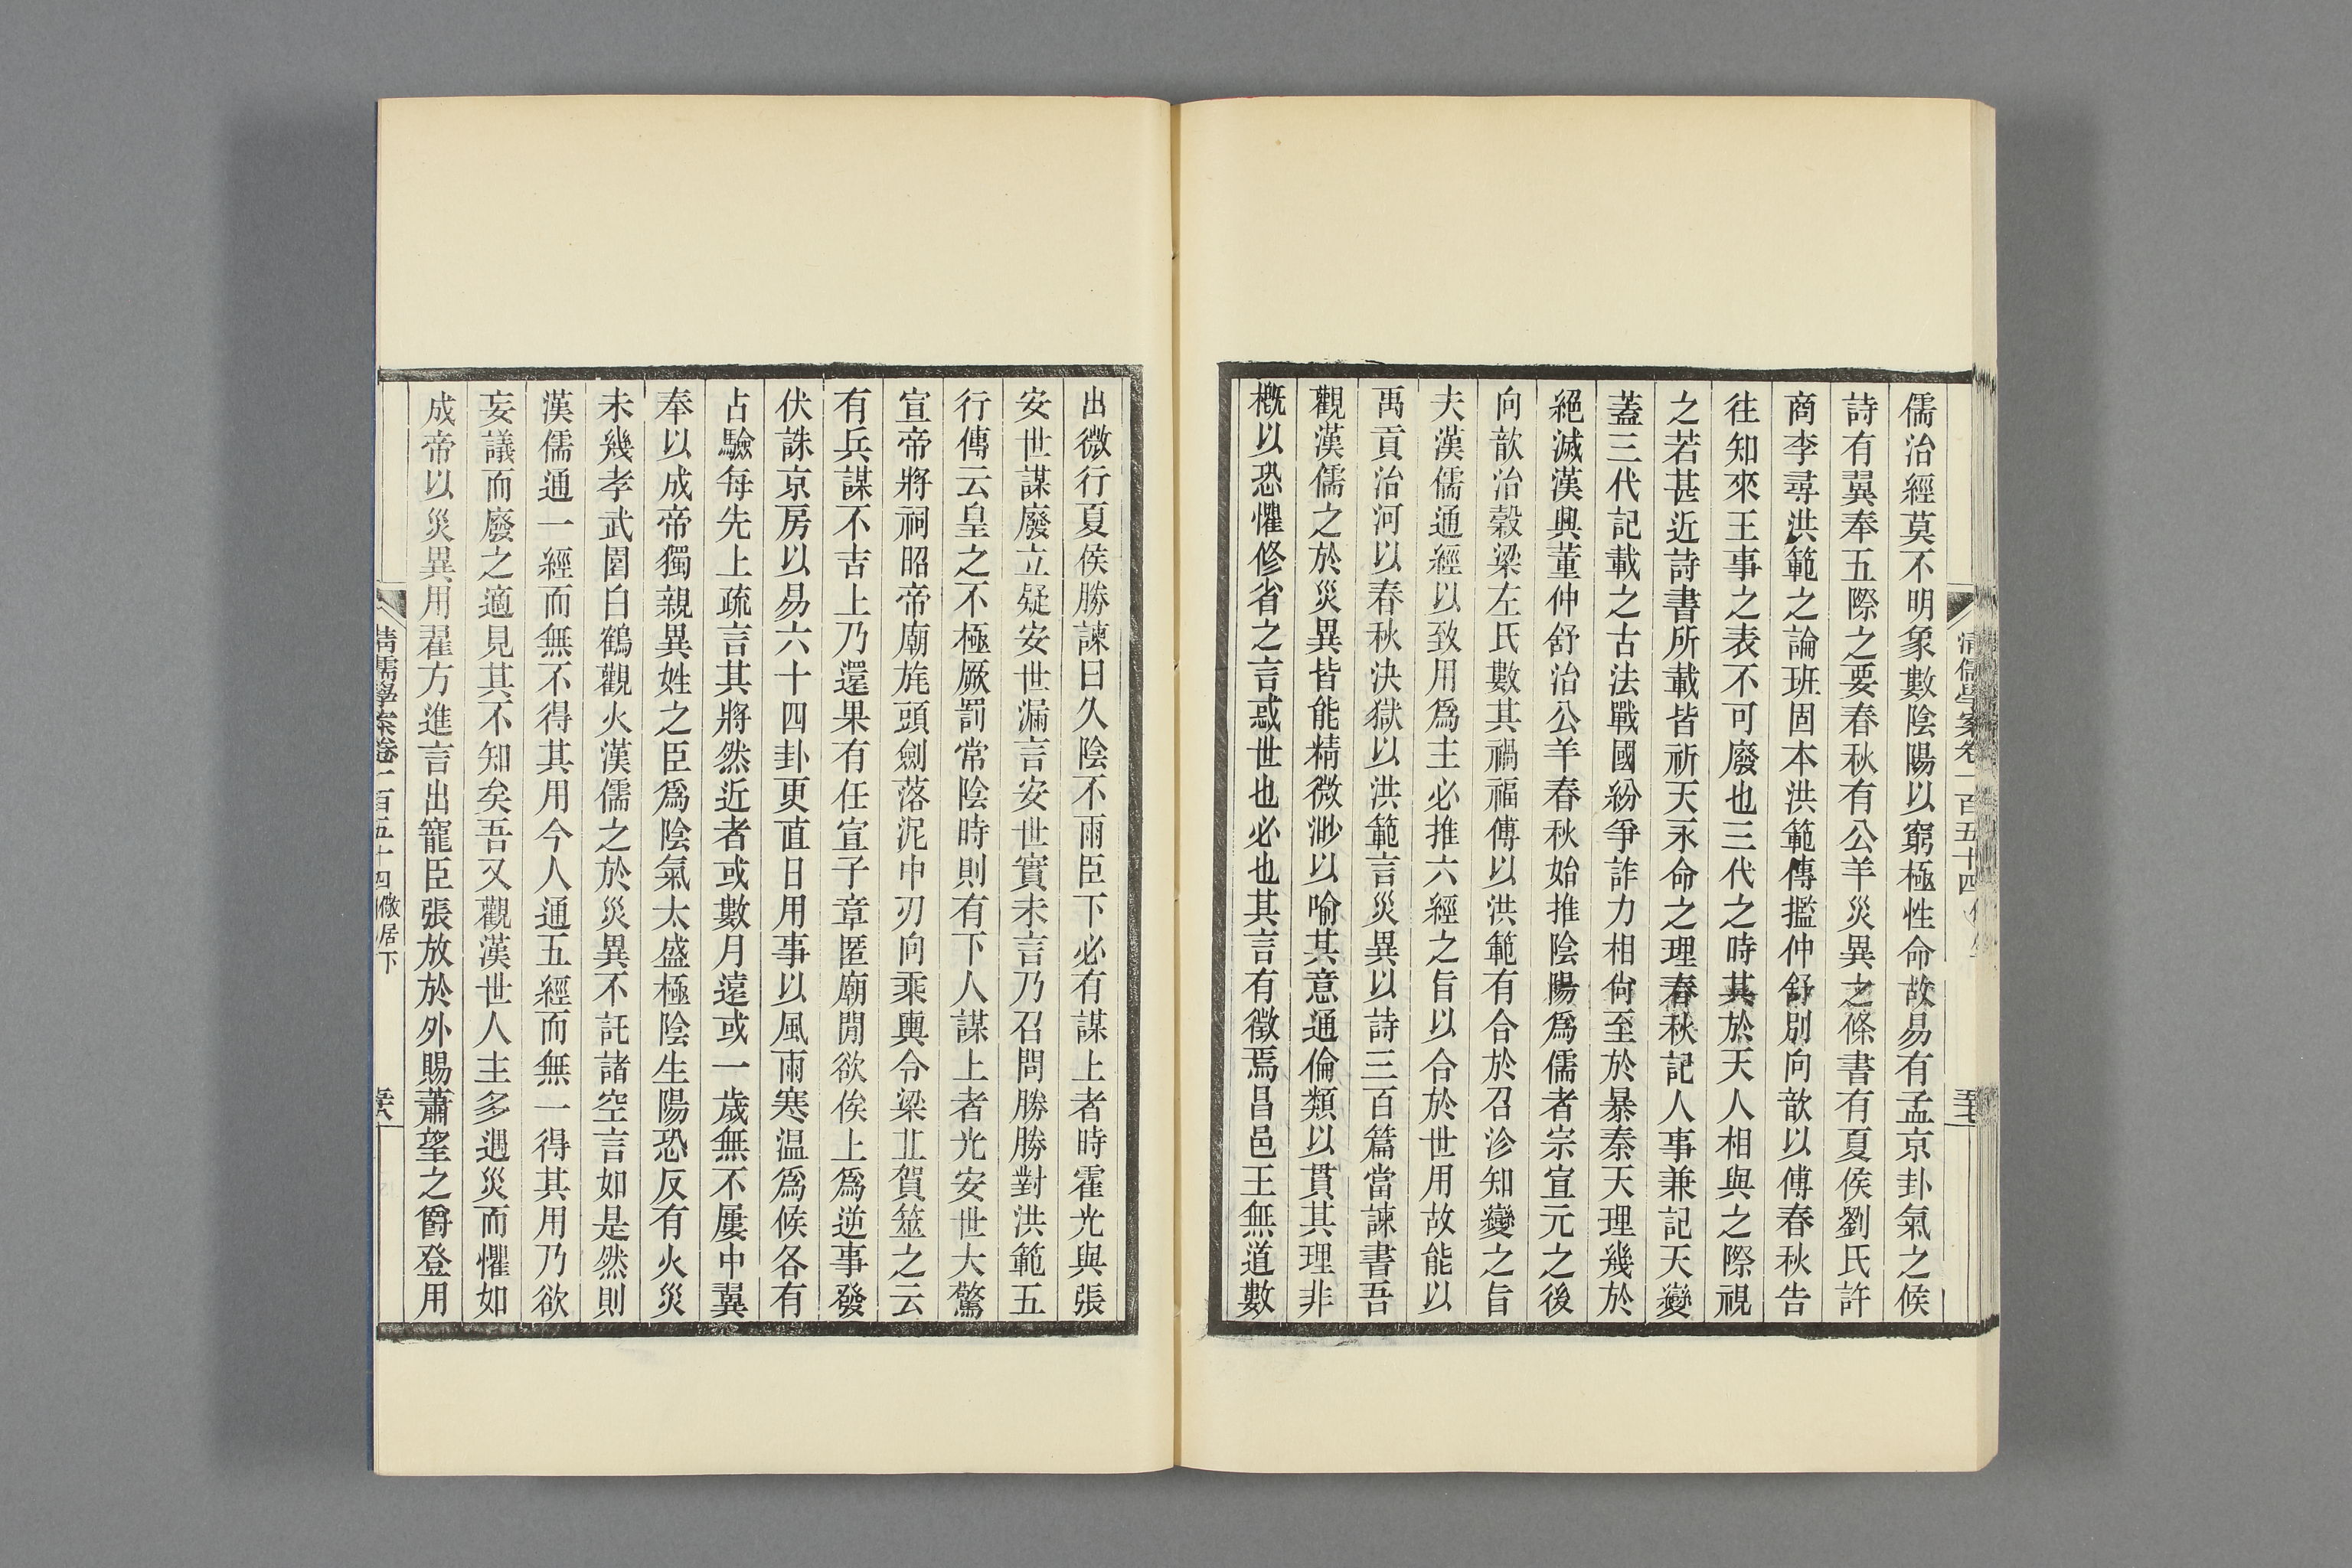 清儒學案卷一百五十四
儒治經莫不明象數陰陽以窮極性命故易有孟京卦氣之候
詩有翼奉五際之要春秋有公羊災異之條書有夏侯劉氏許
商李尋洪範之論班固本洪範傳攬仲舒別向歆以傳春秋告
往知來王事之表不可廢也三代之時其於天人相與之際視
之若甚近詩書所載皆祈天永命之理春秋記人事兼記天變
蓋三代記載之古法戰國紛爭詐力相尙至於暴秦天理幾於
絕滅漢興董仲舒治公羊春秋始推陰陽爲儒者宗宣元之後
向歆治穀梁左氏數其禍福傳以洪範有合於召沴知變之旨
夫漢儒通經以致用爲主必推六經之旨以合於世用故能以
禹貢治河以春秋決獄以洪範言災異以詩三百篇當諫書吾
觀漢儒之於災異皆能精微渺以喻其意通倫類以貫其理非
概以恐懼修省之言惑世也必也其言有徵焉昌邑王無道數
出微行夏侯勝諫曰久陰不雨臣下必有謀上者時霍光與張
安世謀廢立疑安世漏言安世實未言乃召問勝勝對洪範五
行傳云皇之不極厥罰常陰時則有下人謀上者光安世大驚
宣帝將祠昭帝廟旄頭劍落泥中刃向乘輿令梁丘賀筮之云
有兵謀不吉上乃還果有任宣子章匿廟閒欲俟上爲逆事發
伏誅京房以易六十四卦更直日用事以風雨寒温爲候各有
占驗每先上疏言其將然近者或數月遠或一歲無不屢中翼
奉以成帝獨親異姓之臣爲陰氣太盛極陰生陽恐反有火災
未幾孝武園白鶴觀火漢儒之於災異不託諸空言如是然則
漢儒通一經而無不得其用今人通五經而無一得其用乃欲
妄議而廢之適見其不知矣吾又觀漢世人主多遇災而懼如
成帝以災異用翟方進言出寵臣張放於外賜蕭望之爵登用
清儒學案卷一百五十四 儆居下